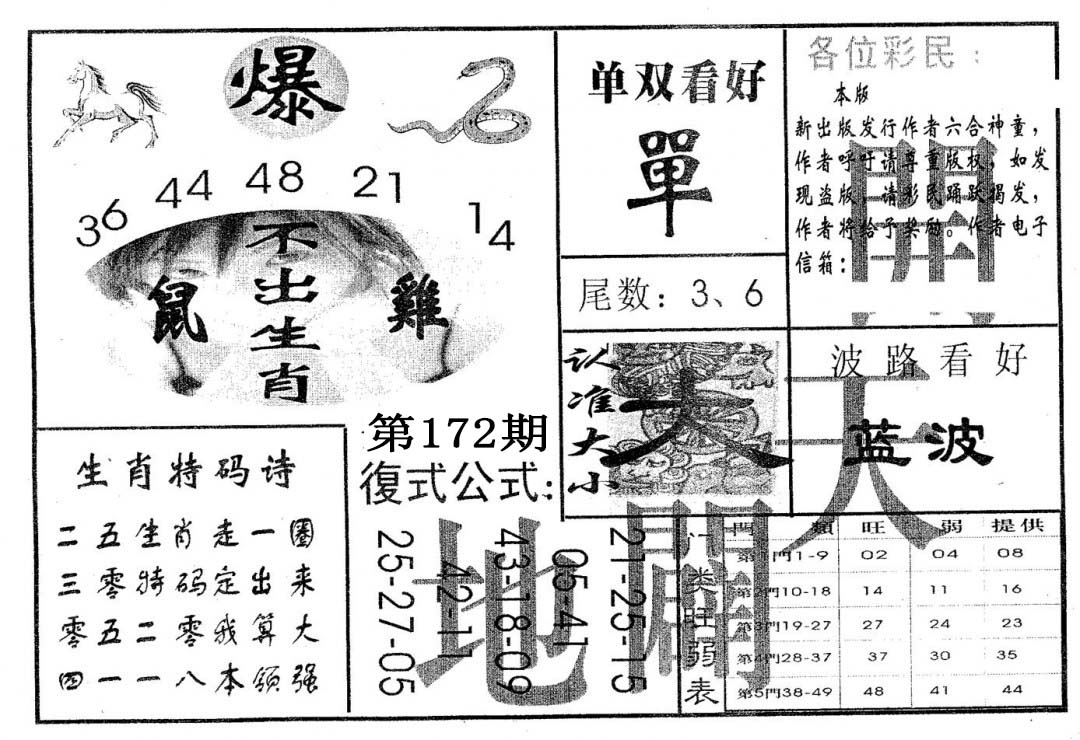 爆
36 44 48 21 14
不出生肖
鼠 雞
单双看好
單
尾数：3、6
各位彩民：
本版
新出版发行作者六合神童，
作者呼吁请尊重版权，如发
现盗版，请彩民踊跃揭发，
作者将给予奖励。作者电子
信箱：
認准大小
大
波路看好
蓝波
天
地
開
闢
第172期
復式公式：
25-27-05
42-11
43-18-09
05-41
21-25-15
生肖特码诗
二五生肖走一圈
三零特码定出来
零五二零我算大
四一一八本领强
门类旺弱表
門 類 旺 弱 提供
第1門1-9 02 04 08
第2門10-18 14 11 16
第3門19-27 27 24 23
第4門28-37 37 30 35
第5門38-49 48 41 44